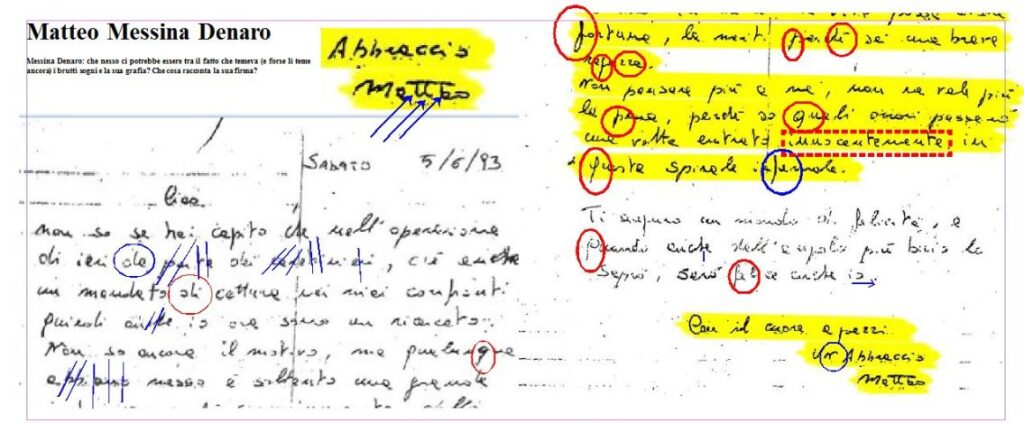 Matteo Messina Denaro
Messina Denaro: che nesso ci potrebbe essere tra il fatto che temeva (e forse li teme
ancora) i brutti sogni e la sua grafia? Che cosa racconta la sua firma?
Abbraccio
Matteo
SABATO 5/6/93
Ciao.
non so se hai capito che nell'operazione
di ieri da parte dei carabinieri, c'è anche
un mandato di cattura nei miei confronti
quindi anche io ora sono un ricercato.
Non so ancora il motivo, ma qualunque
abbiano messo è soltanto una grande
fortuna, la meriti perché sei una brava
ragazza.
Non pensare più a me, non ne vale più
la pena, perché so quali onori passano
una volta entrato innocentemente in
questa spirale infernale.
Ti auguro un mondo di felicità, e
quando anche dall'angolo più buio lo
saprò, sarò felice anche io
Con il cuore a pezzi.
Un Abbraccio
Matteo